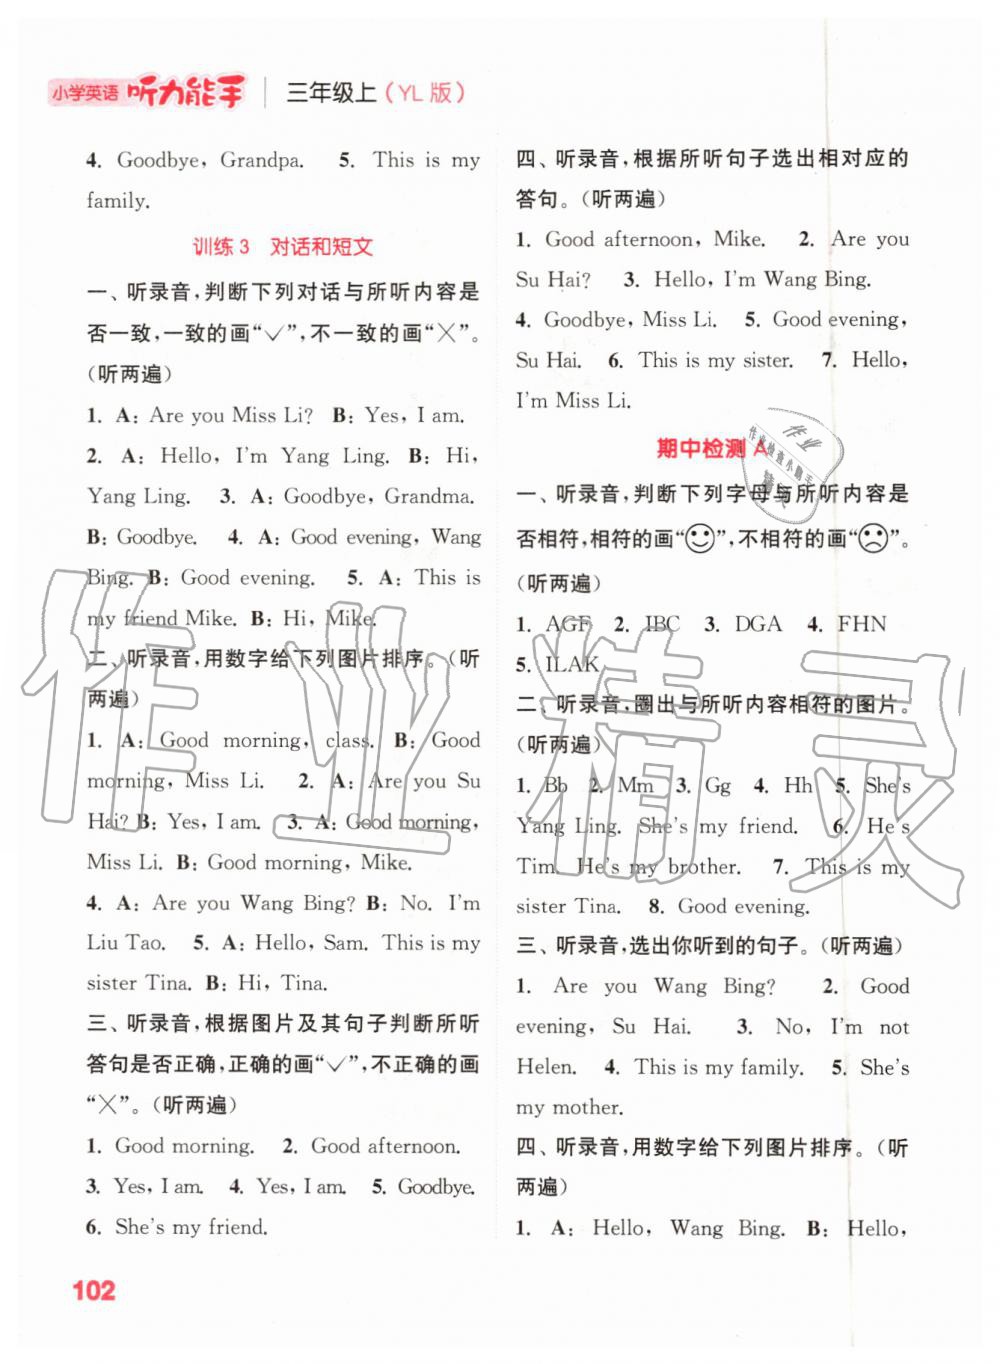 小学英语 听力能手 三年级上（YL 版）
4. Goodbye, Grandpa. 5. This is my
family.
训练 3 对话和短文
一、听录音,判断下列对话与所听内容是
否一致,一致的画“✓”,不一致的画“╳”。
（听两遍）
1. A: Are you Miss Li? B: Yes, I am.
2. A: Hello, I'm Yang Ling. B: Hi,
Yang Ling. 3. A: Goodbye, Grandma.
B: Goodbye. 4. A: Good evening, Wang
Bing. B: Good evening. 5. A: This is
my friend Mike. B: Hi, Mike.
二、听录音,用数字给下列图片排序。（听
两遍）
1. A: Good morning, class. B: Good
morning, Miss Li. 2. A: Are you Su
Hai? B: Yes, I am. 3. A: Good morning,
Miss Li. B: Good morning, Mike.
4. A: Are you Wang Bing? B: No. I'm
Liu Tao. 5. A: Hello, Sam. This is my
sister Tina. B: Hi, Tina.
三、听录音,根据图片及其句子判断所听
答句是否正确,正确的画“✓”,不正确的画
“╳”。（听两遍）
1. Good morning. 2. Good afternoon.
3. Yes, I am. 4. Yes, I am. 5. Goodbye.
6. She's my friend.
102
四、听录音,根据所听句子选出相对应的
答句。（听两遍）
1. Good afternoon, Mike. 2. Are you
Su Hai? 3. Hello, I'm Wang Bing.
4. Goodbye, Miss Li. 5. Good evening,
Su Hai. 6. This is my sister. 7. Hello,
I'm Miss Li.
期中检测 A
一、听录音,判断下列字母与所听内容是
否相符,相符的画“☺”,不相符的画“☹”。
（听两遍）
1. AGF 2. IBC 3. DGA 4. FHN
5. ILAK
二、听录音,圈出与所听内容相符的图片。
（听两遍）
1. Bb 2. Mm 3. Gg 4. Hh 5. She's
Yang Ling. She's my friend. 6. He's
Tim. He's my brother. 7. This is my
sister Tina. 8. Good evening.
三、听录音,选出你听到的句子。（听两遍）
1. Are you Wang Bing? 2. Good
evening, Su Hai. 3. No, I'm not
Helen. 4. This is my family. 5. She's
my mother.
四、听录音,用数字给下列图片排序。（听
两遍）
1. A: Hello, Wang Bing. B: Hello,
作业精灵
作业
作业检查小助手
精灵